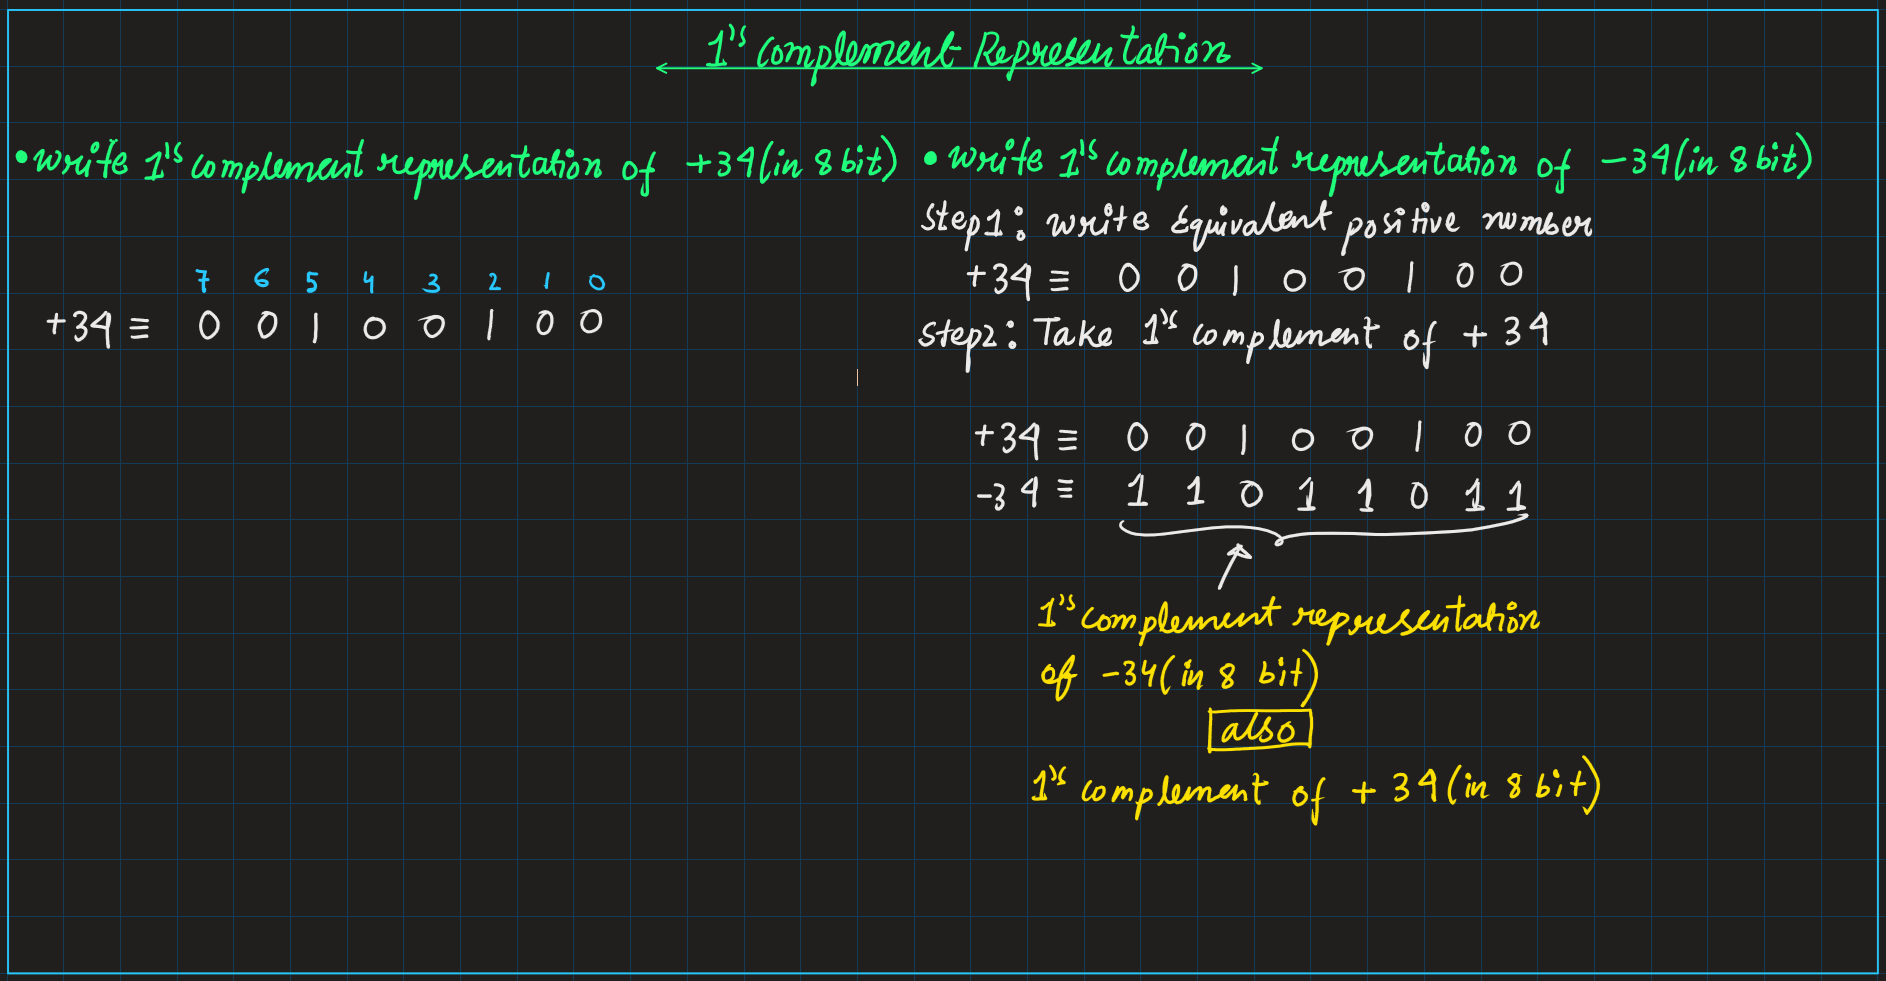 1's complement Representation
• write 1's complement representation of +34 (in 8 bit)
7 6 5 4 3 2 1 0
+34 ≡ 0 0 1 0 0 1 0 0
• write 1's complement representation of -34 (in 8 bit)
Step1: write Equivalent positive number
+34 ≡ 0 0 1 0 0 1 0 0
Step2: Take 1's complement of +34
+34 ≡ 0 0 1 0 0 1 0 0
-34 ≡ 1 1 0 1 1 0 1 1
1's complement representation
of -34 (in 8 bit)
also
1's complement of +34 (in 8 bit)